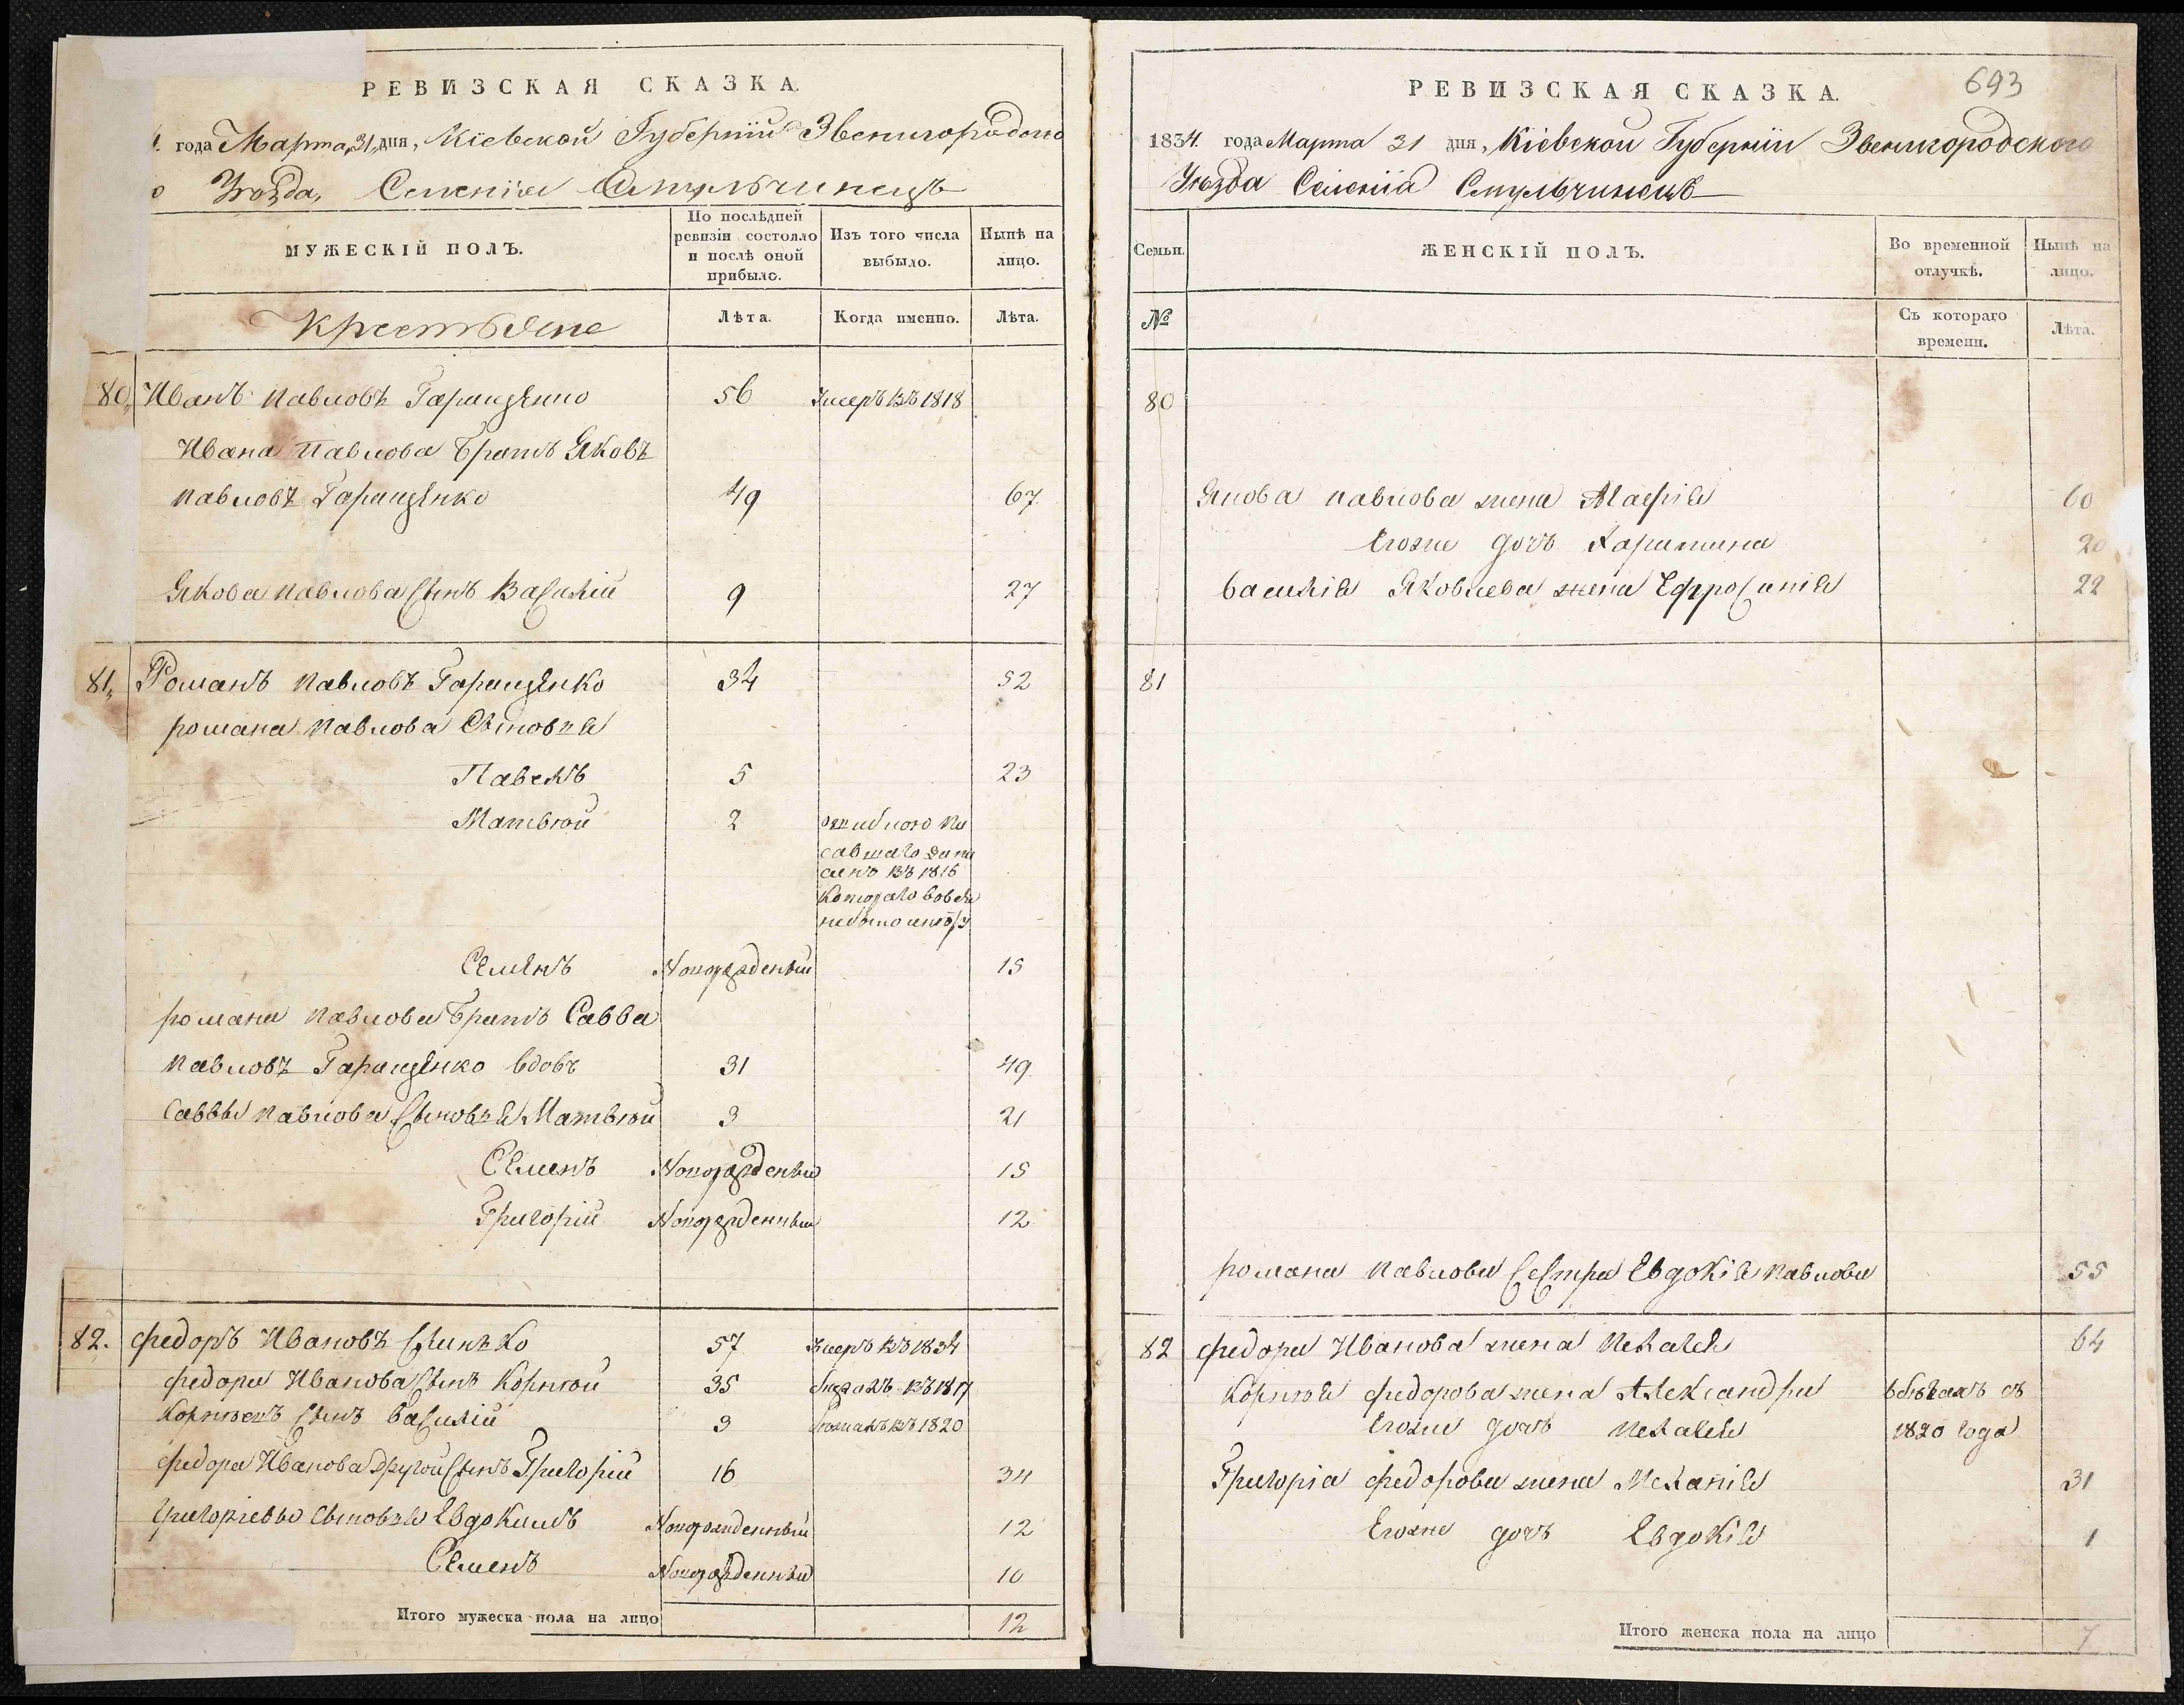 РЕВИЗСКАЯ СКАЗКА.
года Марта 31 дня, Кіевской Губерніи Звенигородско
о Уѣзда, Селенія Стульчинецъ
МУЖЕСКІЙ ПОЛЪ.
По послѣдней ревизіи состояло и послѣ оной прибыло.
Изъ того числа выбыло.
Нынѣ на лицо.
Крестьяне
Лѣта.
Когда именно.
Лѣта.
80, Иванъ Павловъ Гаращенко 56 Умеръ въ 1818
Ивана Павлова братъ Яковъ
Павловъ Гаращенко 49 67
Якова Павлова сынъ Василій 9 27
81, Романъ Павловъ Гаращенко 34 52
Романа Павлова сыновья
Павелъ 5 23
Матвѣй 2 ошибкою пи
савшаго запи
санъ въ 1816
котораго вовся
небыло
Семенъ Новорожденый 15
Романа Павлова братъ Савва
Павловъ Гаращенко вдовъ 31 49
Саввы Павлова сыновья Матвѣй 3 21
Семенъ Новорожденый 15
Григорій Новорожденный 12
82. Федоръ Ивановъ 57 Умеръ въ 1834
Федора Иванова сынъ Корнѣй 35 въ 1817
Корнѣевъ сынъ Василій 3 въ 1820
Федора Иванова другой сынъ Григорій 16 34
Григоріевы сыновья Евдокимъ Новорожденный 12
Семенъ Новорожденный 10
Итого мужеска пола на лицо 12
693
РЕВИЗСКАЯ СКАЗКА.
1834. года Марта 31 дня, Кіевской Губерніи Звенигородского
Уѣзда Селенія Стульчинецъ
Семьи.
ЖЕНСКІЙ ПОЛЪ.
Во временной отлучкѣ.
Нынѣ на лицо.
№
Съ котораго времени.
Лѣта.
80
Якова Павлова жена Марія 60
Егоже дочь Харитина 20
Василія Яковлева жена Ефросинія 22
81
Романа Павлова сестра Евдокія Павлова 55
82 Федора Иванова жена Пелагея 64
Корнѣя Федорова жена Александра въ бѣгахъ съ
Егоже дочь Пелагея 1820 года
Григорія Федорова жена Меланія 31
Егоже дочь Евдокія 1
Итого женска пола на лицо 7